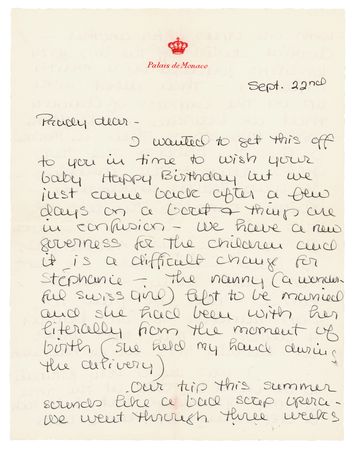 Palais de Monaco
Sept. 22nd
Prudy dear -
I wanted to get this off
to you in time to wish your
baby Happy Birthday but we
just came back after a few
days on a boat & things are
in confusion - We have a new
governess for the children and
it is a difficult change for
Stephanie - The nanny (a wonder-
ful swiss girl) left to be married
and she had been with her
literally from the moment of
birth (she held my hand during
the delivery)
Our trip this summer
sounds like a bad soap opera -
we went through three weeks